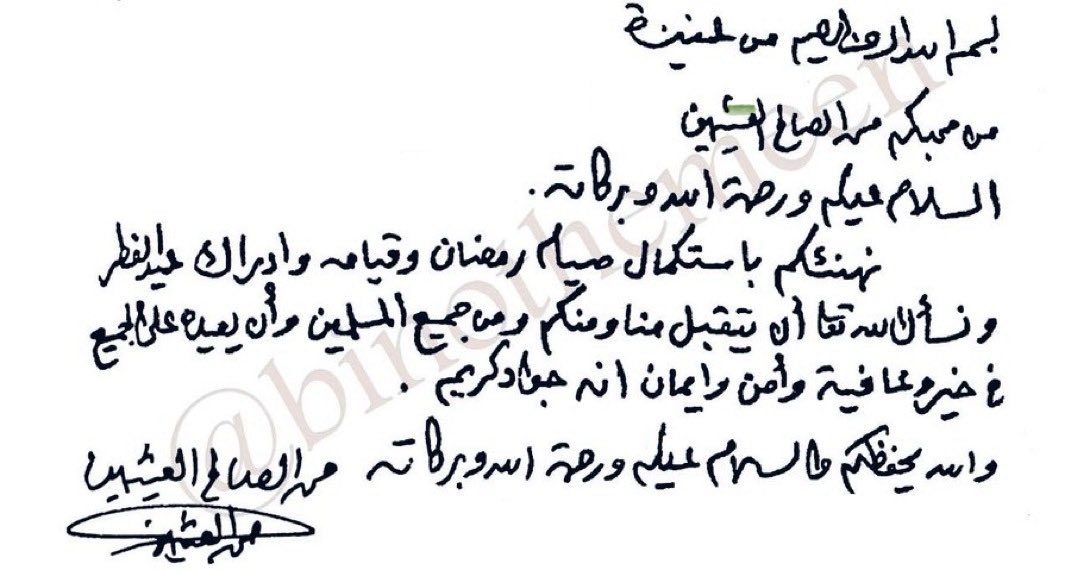 بسم الله الرحمن الرحيم من عنيزة
من محبكم محمد الصالح العثيمين
السلام عليكم ورحمة الله وبركاته .
نهنئكم باستكمال صيام رمضان وقيامه وادراك عيد الفطر
ونسأل الله تعا أن يتقبل منا ومنكم ومن جميع المسلمين وأن يعيده على الجميع
في خير وعافية وأمن وايمان انه جواد كريم .
والله يحفظكم والسلام عليكم ورحمة الله وبركاته محمد الصالح العثيمين
محمد العثيمين
@binothemeen